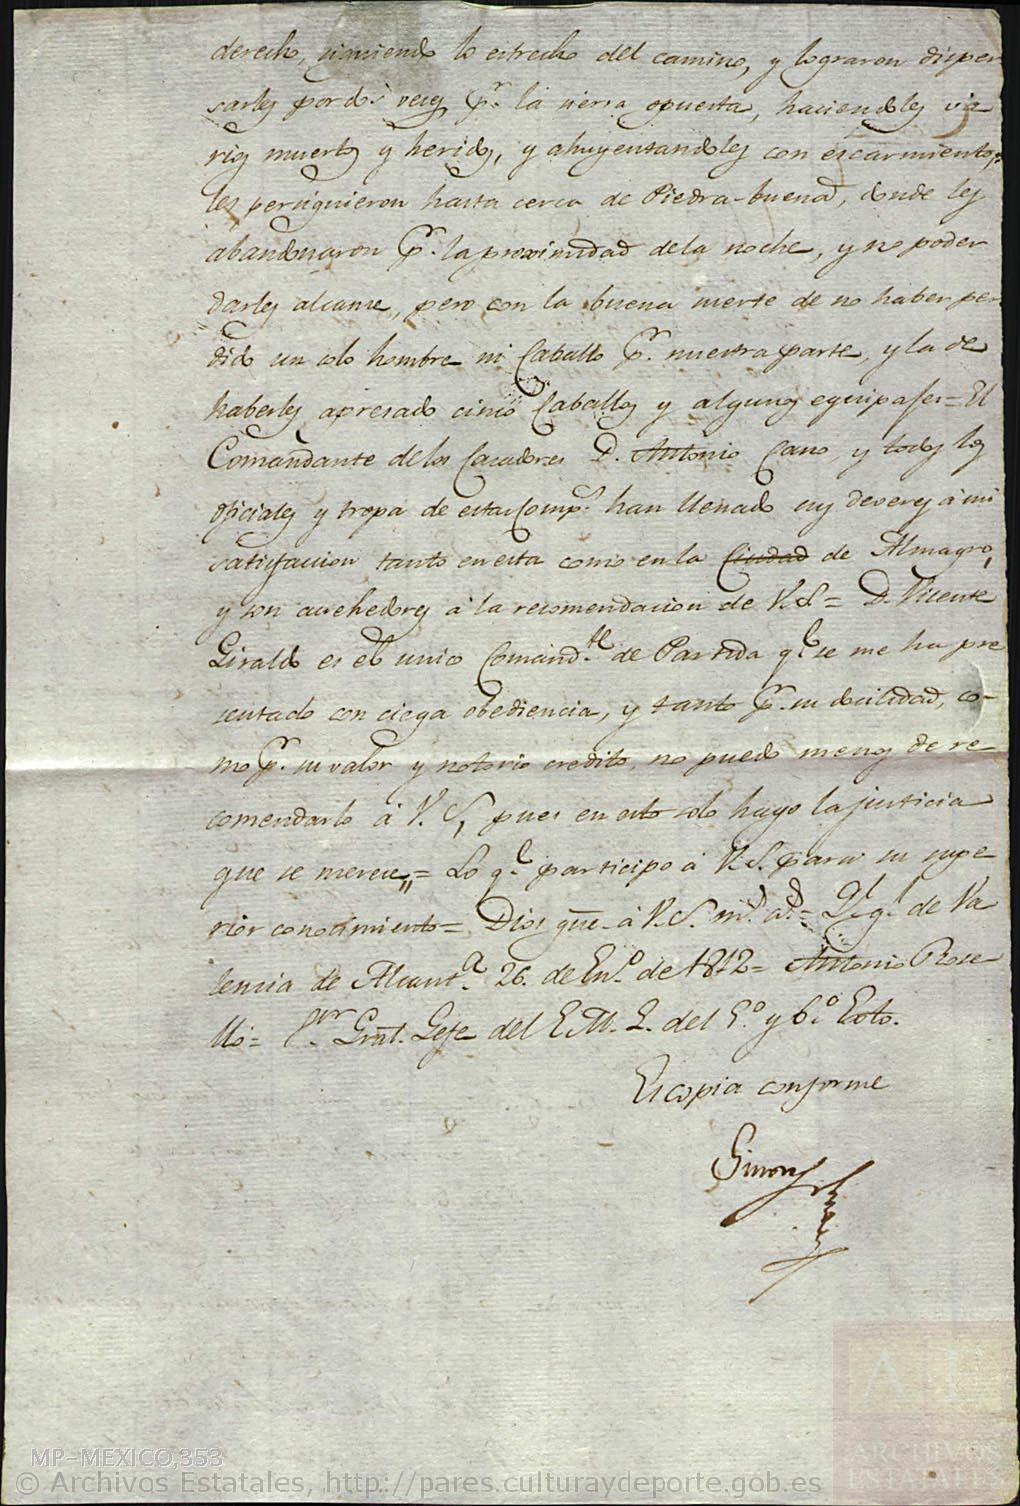 derecho, siguiendo lo estrecho del camino, y lograron disper
sarles por dos veces pr. la sierra opuesta, haciendoles va
rios muertos y heridos, y ahuyentandoles con escarmiento,
les persiguieron hasta cerca de Piedra-buena, donde les
abandonaron pr. la proximidad de la noche, y no poder
darles alcanse, pero con la buena suerte de no haber per
dido un solo hombre ni Caballo pr. nuestra parte, y la de
haberles apresado cinco Caballos y algunos equipajes = El
Comandante de los Cazadores D. Antonio Cano, y todos los
oficiales y tropa de estas Comps. han llenado sus deveres á mi
satisfaccion tanto en esta como en la Ciudad de Almagro,
y son acrehedores á la recomendacion de V.S = D. Vicente
Giraldo es el unico Comandte. de Partida ql. se me ha pre
sentado con ciega obediencia, y tanto pr. su docilidad, co-
mo pr. su valor y notorio credito, no puedo menos de re
comendarlo á V. S, pues en esto solo hago la justicia
que se merece,, = Lo ql. participo á V.S. para su supe
rior conocimiento = Dios gue. á V.S. ms. as. = Ql. gl. de Va
lencia de Alcanta. 26. de Eno. de 1812 = Antonio Rose
lló = Sor. Gral. Gefe del E.M. G. del 5.º y 6.º Exto.
Es copia conforme
MP-MEXICO,353
© Archivos Estatales, http://pares.culturaydeporte.gob.es
AE
ARCHIVOS
ESTATALES